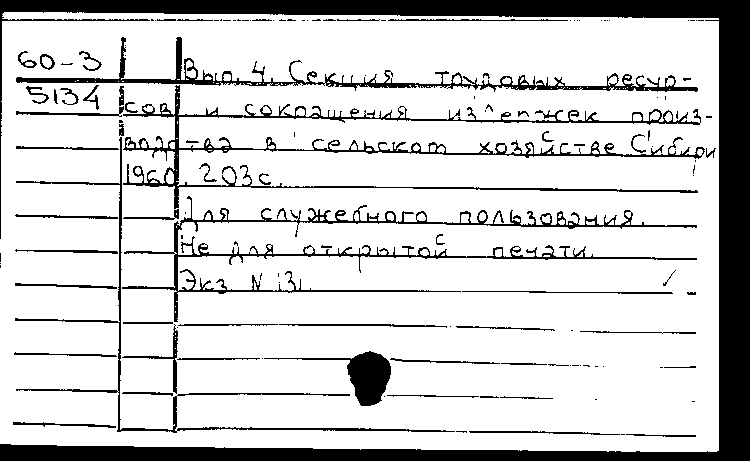 60-3
5134
Вып. 4. Секция трудовых ресур-
сов и сокращения издержек произ-
водства в сельском хозяйстве Сибири
1960. 203 с.
Для служебного пользования.
Не для открытой печати.
Экз N 131.